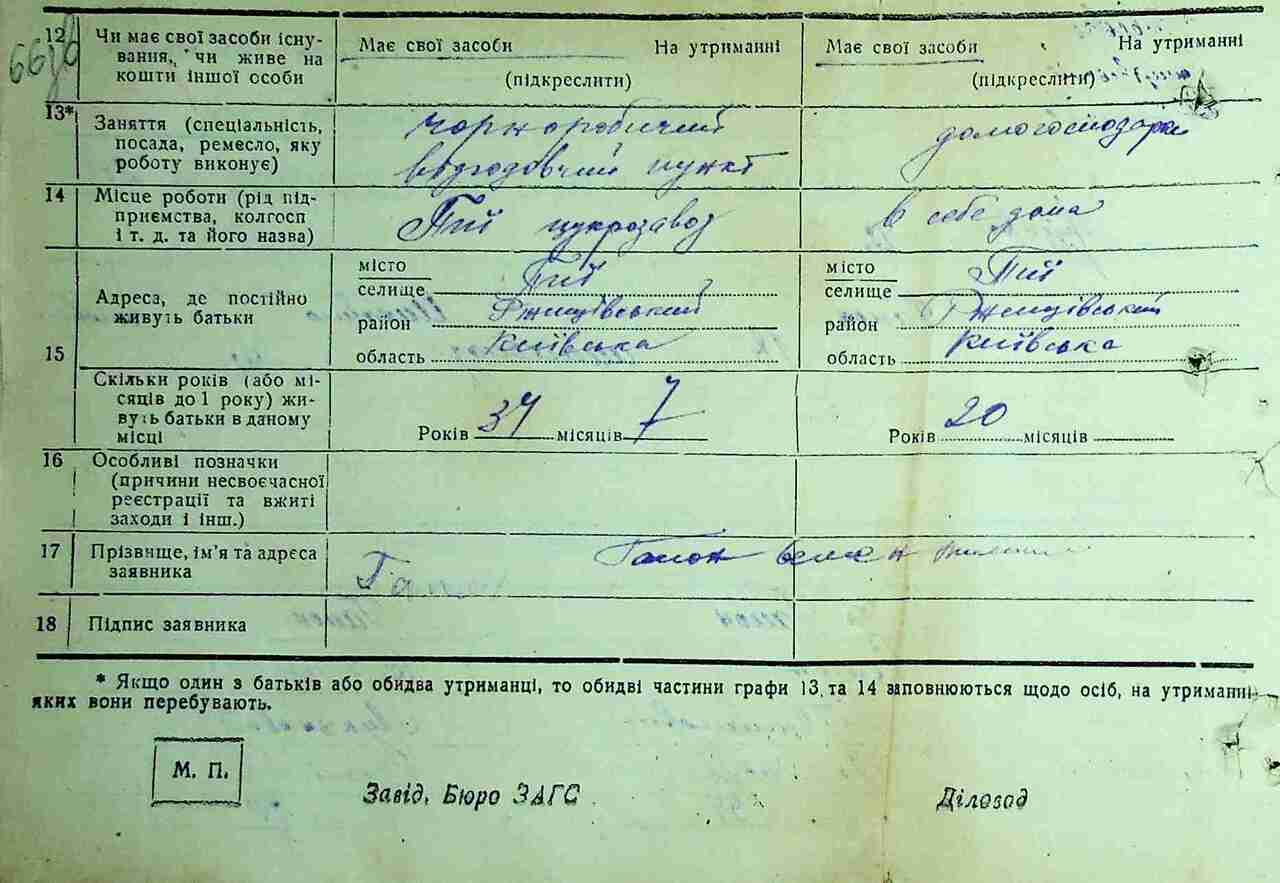 66зв
12 Чи має свої засоби існу-
вання, чи живе на
кошти іншої особи
Має свої засоби На утриманні
(підкреслити)
Має свої засоби На утриманні
(підкреслити)
13* Заняття (спеціальність,
посада, ремесло, яку
роботу виконує)
чорноробичий
відгодовчий пункт
домогосподарка
14 Місце роботи (рід під-
приємства, колгосп
і т. д. та його назва)
Пії цукрозавод
в себе дома
15 Адреса, де постійно
живуть батьки
місто
селище Пії
район Ржищівський
область Київська
місто
селище Пії
район Ржищівський
область Київська
Скільки років (або мі-
сяців до 1 року) жи-
вуть батьки в даному
місці
Років 34 місяців 7
Років 20 місяців
16 Особливі позначки
(причини несвоєчасної
реєстрації та вжиті
заходи і інш.)
17 Прізвище, ім'я та адреса
заявника
18 Підпис заявника
* Якщо один з батьків або обидва утриманці, то обидві частини графи 13 та 14 заповнюються щодо осіб, на утриманні
яких вони перебувають.
М. П.
Завід. Бюро ЗАГС
Діловод